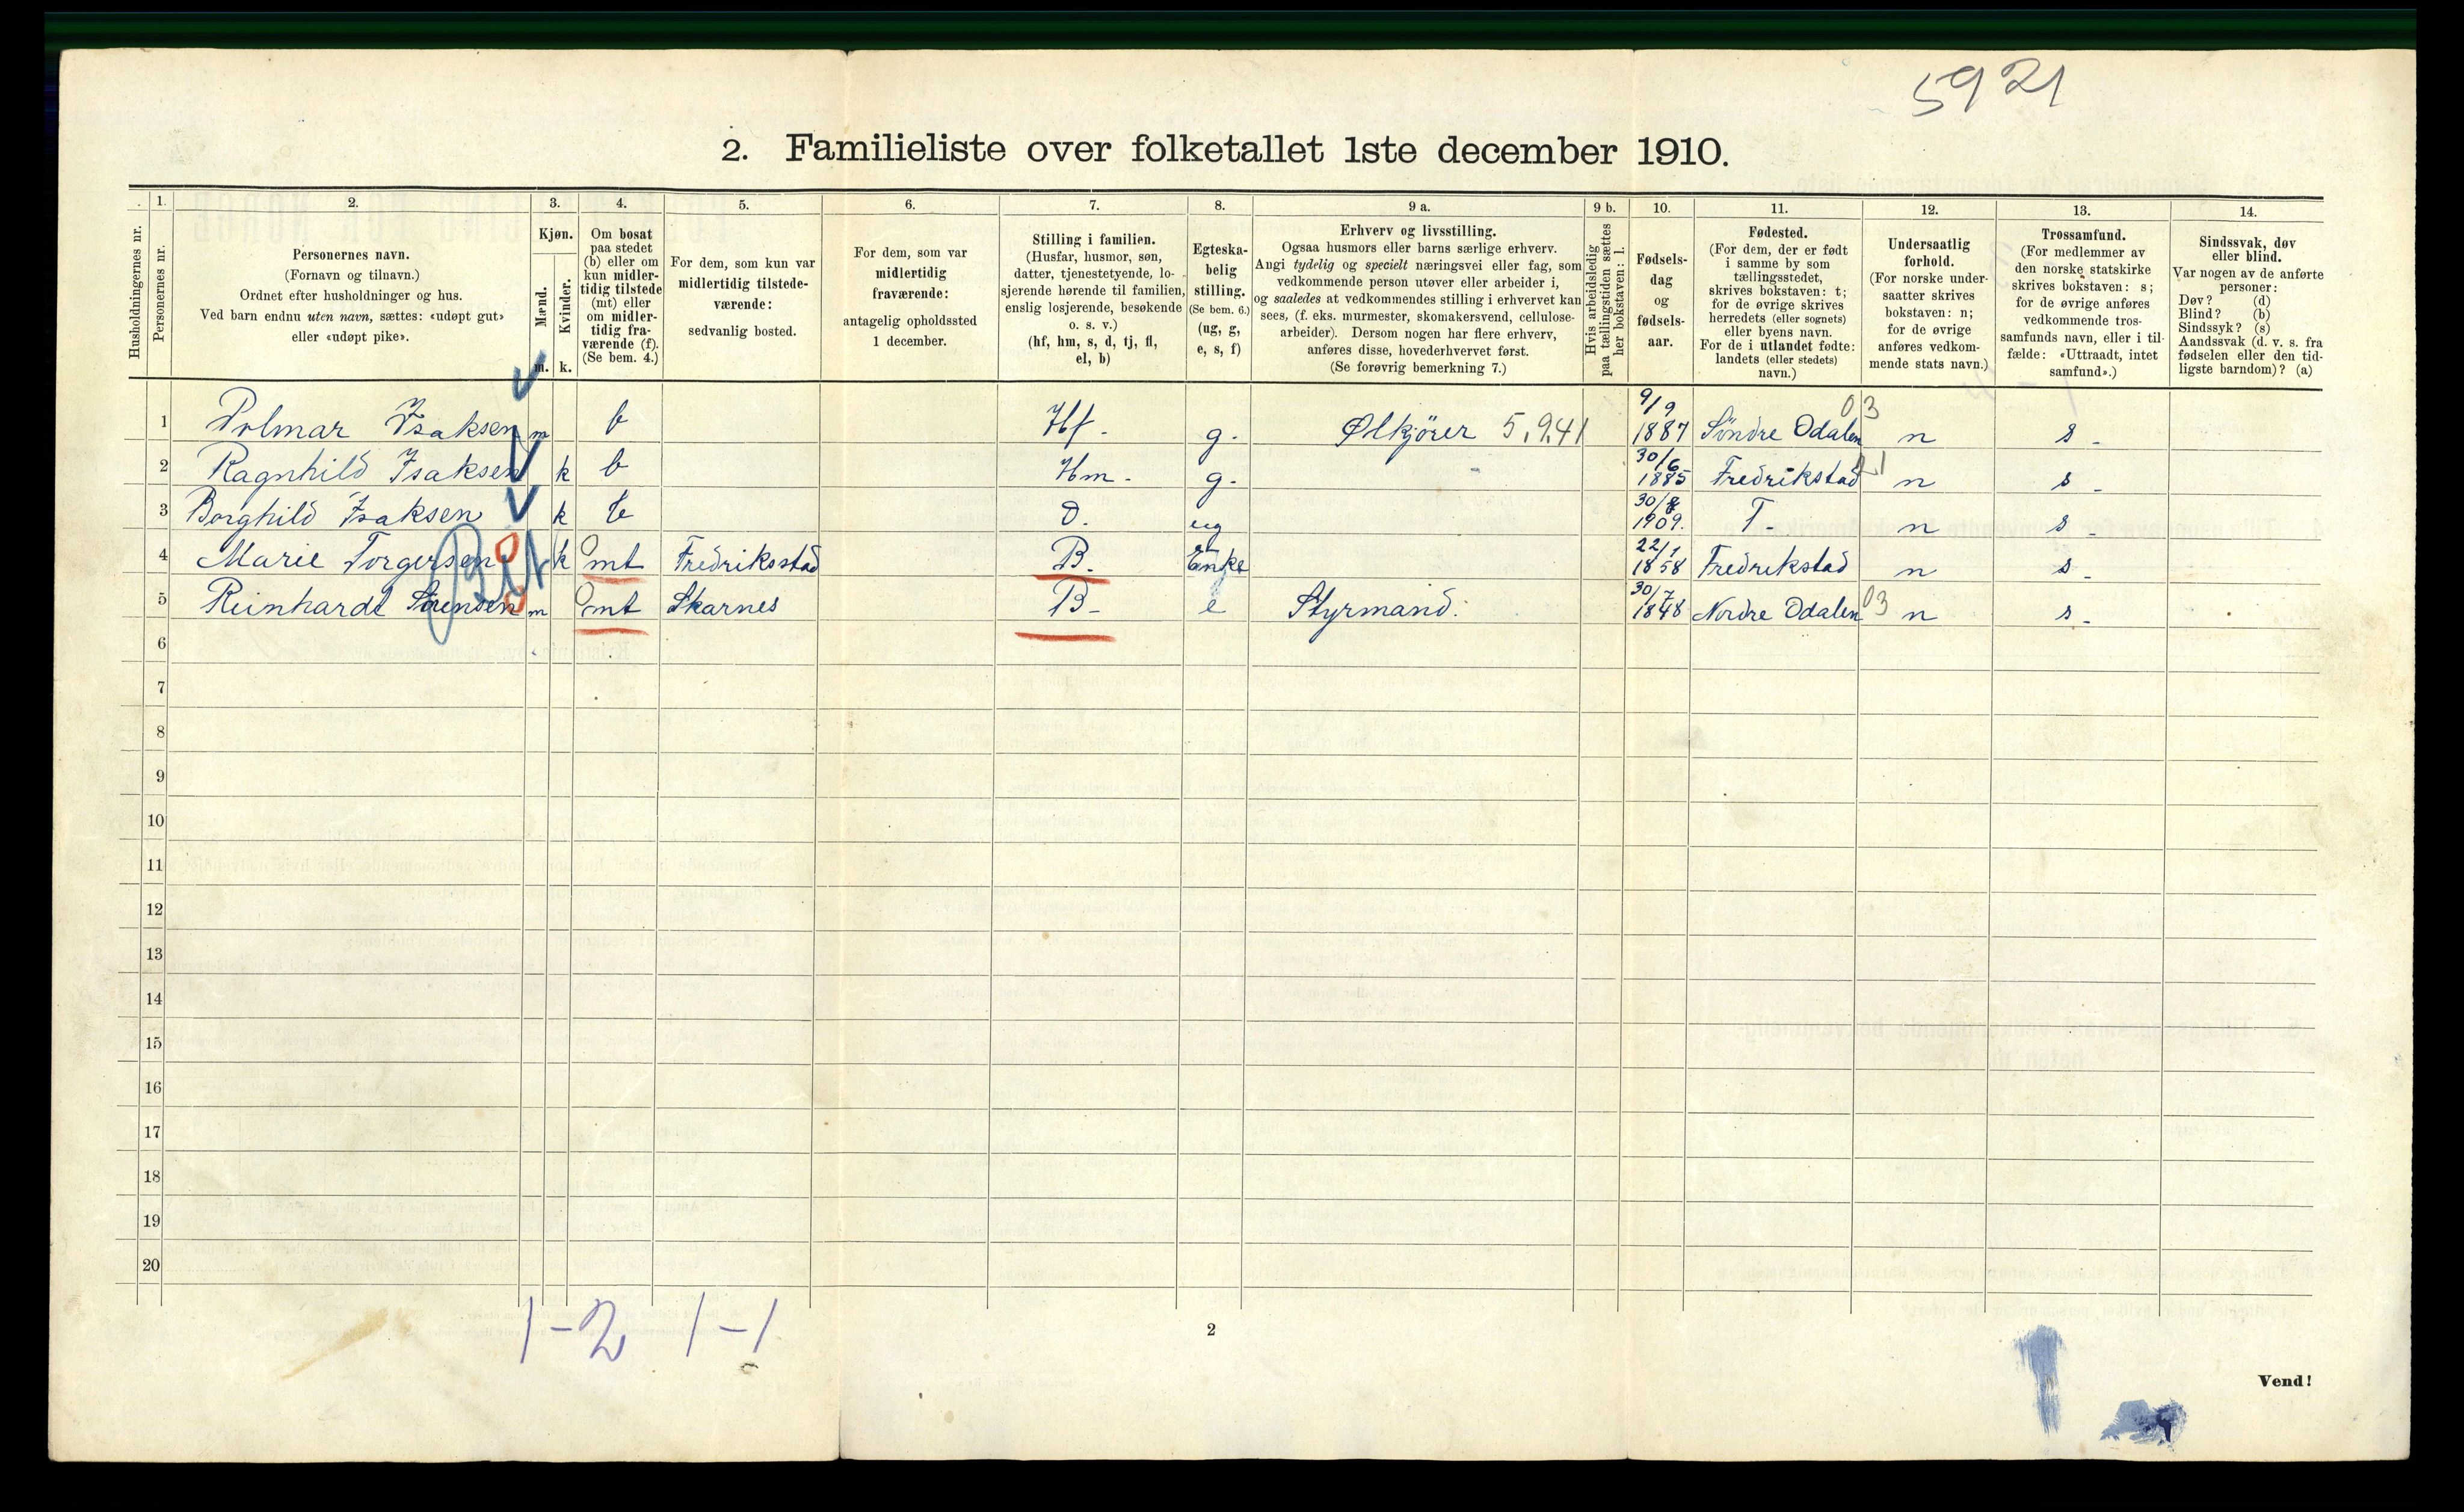 5921
2. Familieliste over folketallet 1ste december 1910.
1. 2. 3. 4. 5. 6. 7. 8. 9 a. 9 b. 10. 11. 12. 13. 14.
Husholdningernes nr.
Personernes nr.
Personernes navn.
(Fornavn og tilnavn.)
Ordnet efter husholdninger og hus.
Ved barn endnu uten navn, sættes: «udøpt gut»
eller «udøpt pike».
Kjøn.
Mænd.
Kvinder.
m. k.
Om bosat
paa stedet
(b) eller om
kun midler-
tidig tilstede
(mt) eller
om midler-
tidig fra-
værende (f).
(Se bem. 4.)
For dem, som kun var
midlertidig tilstede-
værende:
sedvanlig bosted.
For dem, som var
midlertidig
fraværende:
antagelig opholdssted
1 december.
Stilling i familien.
(Husfar, husmor, søn,
datter, tjenestetyende, lo-
sjerende hørende til familien,
enslig losjerende, besøkende
o. s. v.)
(hf, hm, s, d, tj, fl,
el, b)
Egteska-
belig
stilling.
(Se bem. 6.)
(ug, g,
e, s, f)
Erhverv og livsstilling.
Ogsaa husmors eller barns særlige erhverv.
Angi tydelig og specielt næringsvei eller fag, som
vedkommende person utøver eller arbeider i,
og saaledes at vedkommendes stilling i erhvervet kan
sees, (f. eks. murmester, skomakersvend, cellulose-
arbeider). Dersom nogen har flere erhverv,
anføres disse, hovederhvervet først.
(Se forøvrig bemerkning 7.)
Hvis arbeidsledig
paa tællingstiden sættes
her bokstaven: l.
Fødsels-
dag
og
fødsels-
aar.
Fødested.
(For dem, der er født
i samme by som
tællingsstedet,
skrives bokstaven: t;
for de øvrige skrives
herredets (eller sognets)
eller byens navn.
For de i utlandet fødte:
landets (eller stedets)
navn.)
Undersaatlig
forhold.
(For norske under-
saatter skrives
bokstaven: n;
for de øvrige
anføres vedkom-
mende stats navn.)
Trossamfund.
(For medlemmer av
den norske statskirke
skrives bokstaven: s;
for de øvrige anføres
vedkommende tros-
samfunds navn, eller i til-
fælde: «Uttraadt, intet
samfund».)
Sindssvak, døv
eller blind.
Var nogen av de anførte
personer:
Døv? (d)
Blind? (b)
Sindssyk? (s)
Aandssvak (d. v. s. fra
fødselen eller den tid-
ligste barndom)? (a)
1 Polmar Isaksen m b Hf. g. Ølkjörer 5.9.41 9/9 1887 Söndre Odalen 03 n s.
2 Ragnhild Isaksen k b Hm. g. 30/6 1885 Fredrikstad n s.
3 Borghild Isaksen k b D. ug 30/8 1909. T. n s.
4 Marie Torgersen k mt Fredriksstad B. Enke 22/1 1858 Fredrikstad n s.
5 Reinhardt Sörensen m mt Skarnes B. e Styrmand. 30/7 1848 Nordre Odalen 03 n s.
6
7
8
9
10
11
12
13
14
15
16
17
18
19
20
1-2 1-1
2
Vend!